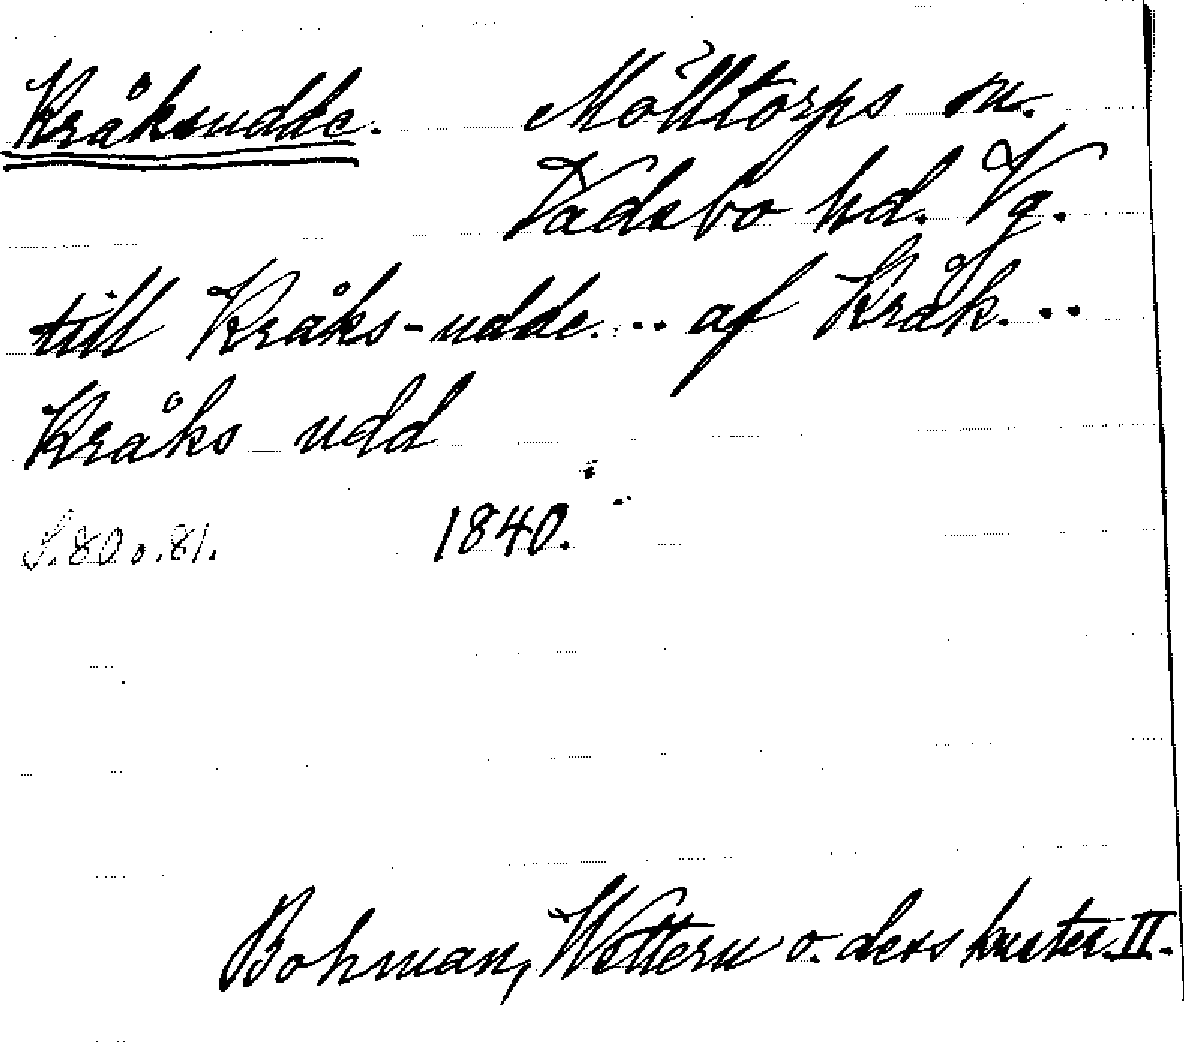 Kråksudde. Mölltorps sn.
Vadsbo hd. Vg.
till Kråks-udde... af Kråk...
Kråks udd
S. 80 o. 81. 1840.
Bohman, Wettern o. dess kuster. II.